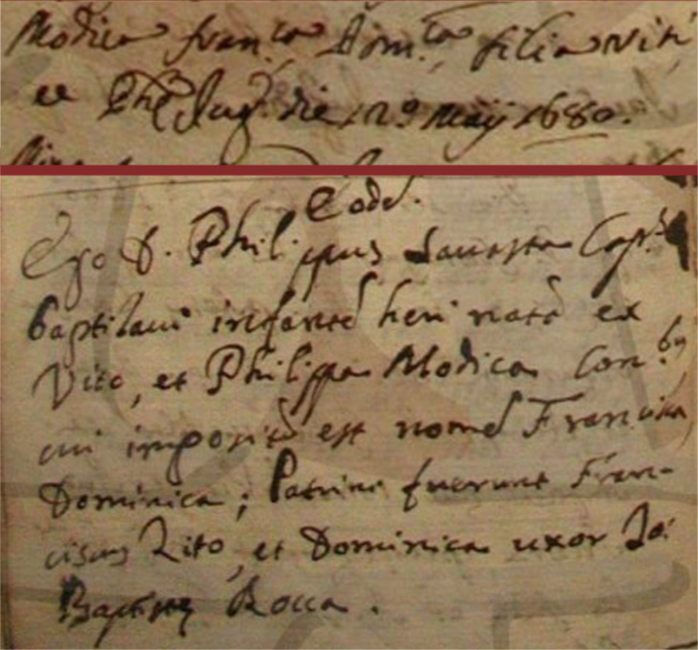 Modica Fran.ca Dom.ca filia Viti
et Ph.æ Jug. die 12.º Maij 1680.
Eodē.
Ego D. Philippus Cap.s
baptizavi infantē heri natā ex
Vito, et Philippa Modica Con.bꝫ
cui impositū est nomē Francisca,
Dominica; Patrini fuerunt Fran-
ciscus Zito, et Dominica uxor Jo:
Baptistę Rocca.